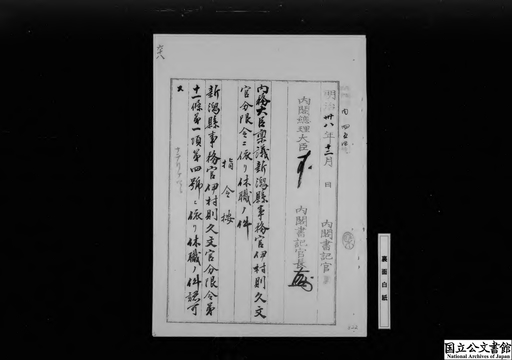 明治卅八年十二月 日
内閣書記官
内閣總理大臣
内閣書記官長
内務大臣稟議新潟縣事務官伊村則久文
官分限令ニ依リ休職ノ件
指令按
新潟縣事務官伊村則久文官分限令第
十一條第一項第四號ニ依リ休職ノ件認可
ス
裏面白紙
国立公文書館
National Archives of Japan